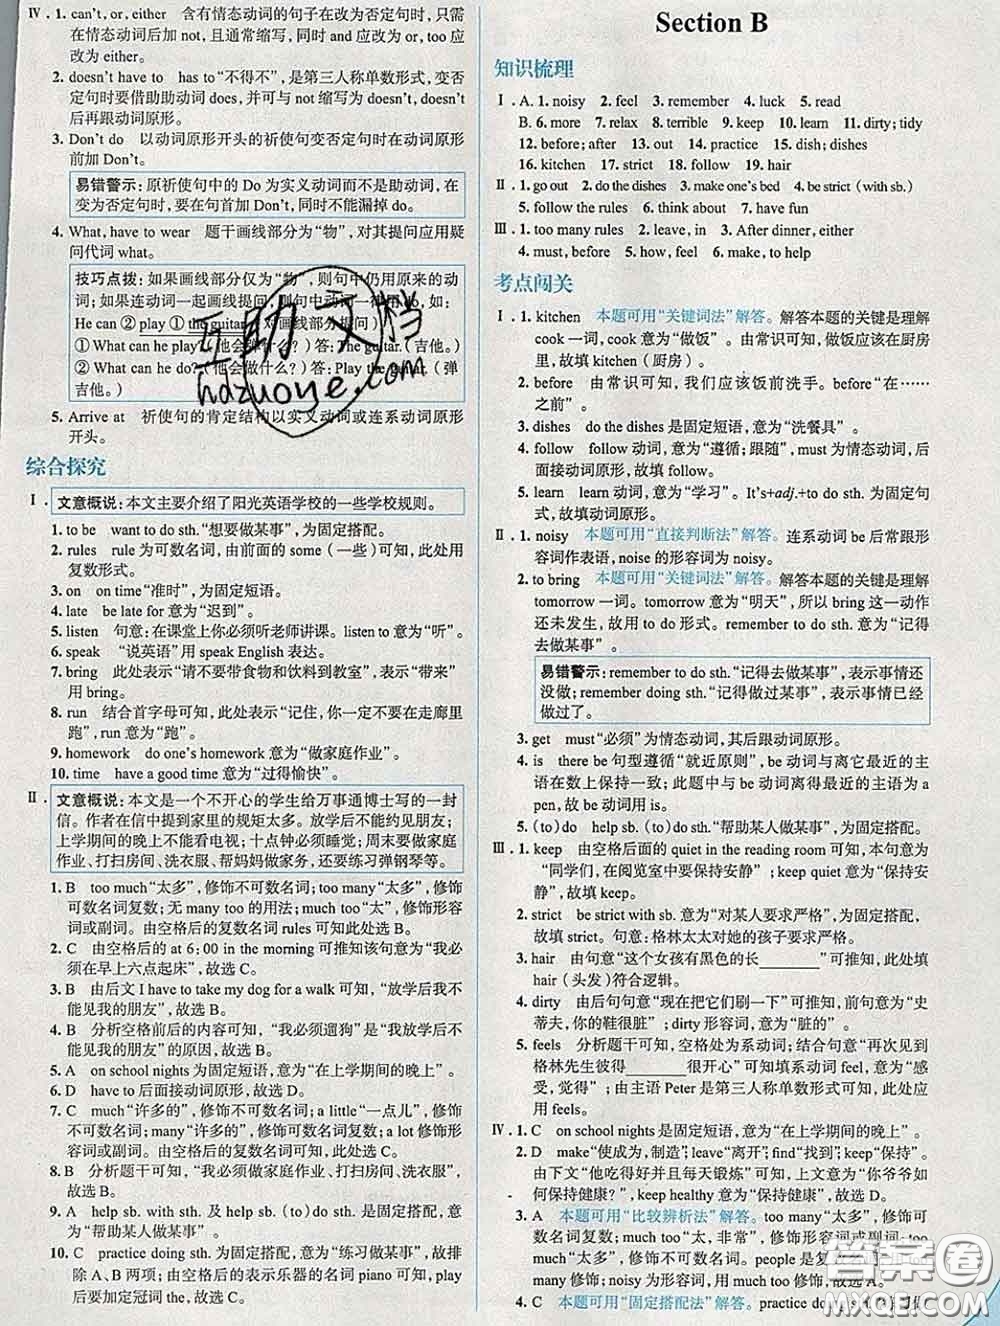 Ⅳ. 1. can't, or, either 含有情态动词的句子在改为否定句时，只需
在情态动词后加 not，且通常缩写，同时 and 应改为 or, too 应
改为 either.
2. doesn't have to has to“不得不”，是第三人称单数形式，变否
定句时要借助助动词 does，并可与 not 缩写为 doesn't, doesn't
后再跟动词原形。
3. Don't do 以动词原形开头的祈使句变否定句时在动词原形
前加 Don't。
易错警示：原祈使句中的 Do 为实义动词而不是助动词，在
变为否定句时，要在句首加 Don't，同时不能漏掉 do。
4. What, have to wear 题干画线部分为“物”，对其提问应用疑
问代词 what。
技巧点拨：如果画线部分仅为“物”，则句中仍用原来的动
词；如果连动词一起画线提问，则句中动词一律用 do，如：
He can ② play ① the guitar.（对画线部分提问）
① What can he play?（他会弹什么？）答：The guitar.（吉他。）
② What can he do?（他会做什么？）答：Play the guitar.（弹
吉他。）
5. Arrive at 祈使句的肯定结构以实义动词或连系动词原形
开头。
综合探究
Ⅰ. 文意概说：本文主要介绍了阳光英语学校的一些学校规则。
1. to be want to do sth.“想要做某事”，为固定搭配。
2. rules rule 为可数名词，由前面的 some（一些）可知，此处用
复数形式。
3. on on time“准时”，为固定短语。
4. late be late for 意为“迟到”。
5. listen 句意：在课堂上你必须听老师讲课。listen to 意为“听”。
6. speak “说英语”用 speak English 表达。
7. bring 此处表示“请不要带食物和饮料到教室”，表示“带来”
用 bring。
8. run 结合首字母可知，此处表示“记住，你一定不要在走廊里
跑”，run 意为“跑”。
9. homework do one's homework 意为“做家庭作业”。
10. time have a good time 意为“过得愉快”。
Ⅱ. 文意概说：本文是一个不开心的学生给万事通博士写的一封
信。作者在信中提到家里的规矩太多。放学后不能约见朋友；
上学期间的晚上不能看电视；十点钟必须睡觉；周末要做家庭
作业、打扫房间、洗衣服、帮妈妈做家务，还要练习弹钢琴等。
1. B too much“太多”，修饰不可数名词；too many“太多”，修饰
可数名词复数；无 many too 的用法；much too“太”，修饰形容
词或副词。由空格后的复数名词 rules 可知此处选 B。
2. C 由空格后的 at 6:00 in the morning 可推知该句意为“我必
须在早上六点起床”，故选 C。
3. B 由后文 I have to take my dog for a walk 可知，“放学后我不
能见我的朋友”，故选 B。
4. B 分析空格前后的内容可知，“我必须遛狗”是“我放学后不
能见我的朋友”的原因，故选 B。
5. A on school nights 为固定短语，意为“在上学期间的晚上”。
6. D have to 后面接动词原形，故选 D。
7. C much“许多的”，修饰不可数名词；a little“一点儿”，修饰不
可数名词；many“许多的”，修饰可数名词复数；a lot 修饰形容
词或副词。由空格后的复数名词可知，此处选 C。
8. B 分析题干可知，“我必须做家庭作业、打扫房间、洗衣服”，
故选 B。
9. A help sb. with sth. 及 help sb. (to) do sth. 为固定搭配，意为
“帮助某人做某事”
10. C practice doing sth. 为固定搭配，意为“练习做某事”，故排
除 A、B 两项；由空格后的表示乐器的名词 piano 可知，play
后要加定冠词 the，故选 C。
Section B
知识梳理
Ⅰ. A. 1. noisy 2. feel 3. remember 4. luck 5. read
B. 6. more 7. relax 8. terrible 9. keep 10. learn 11. dirty; tidy
12. before; after 13. out 14. practice 15. dish; dishes
16. kitchen 17. strict 18. follow 19. hair
Ⅱ. 1. go out 2. do the dishes 3. make one's bed 4. be strict (with sb.)
5. follow the rules 6. think about 7. have fun
Ⅲ. 1. too many rules 2. leave, in 3. After dinner, either
4. must, before 5. how, feel 6. make, to help
考点闯关
Ⅰ. 1. kitchen 本题可用“关键词法”解答。解答本题的关键是理解
cook 一词，cook 意为“做饭”。由常识可知，做饭应该在厨房
里，故填 kitchen（厨房）。
2. before 由常识可知，我们应该饭前洗手。before“在……
之前”。
3. dishes do the dishes 是固定短语，意为“洗餐具”。
4. follow follow 动词，意为“遵循；跟随”，must 为情态动词，后
面接动词原形，故填 follow。
5. learn learn 动词，意为“学习”。It's+adj.+to do sth. 为固定句
式，故填动词原形。
Ⅱ. 1. noisy 本题可用“直接判断法”解答。连系动词 be 后常跟形
容词作表语，noise 的形容词为 noisy。
2. to bring 本题可用“关键词法”解答。解答本题的关键是理解
tomorrow 一词。tomorrow 意为“明天”，所以 bring 这一动作
还未发生，故用 to do 形式。remember to do sth. 意为“记得
去做某事”。
易错警示：remember to do sth.“记得去做某事”，表示事情还
没做；remember doing sth.“记得做过某事”，表示事情已经
做过了。
3. get must“必须”为情态动词，其后跟动词原形。
4. is there be 句型遵循“就近原则”，be 动词与离它最近的主
语在数上保持一致；此题中与 be 动词离得最近的主语为 a
pen，故 be 动词用 is。
5. (to) do help sb. (to) do sth.“帮助某人做某事”，为固定搭配。
Ⅲ. 1. keep 由空格后面的 quiet in the reading room 可知，本句意为
“同学们，在阅览室中要保持安静”；keep quiet 意为“保持安
静”，故填 keep。
2. strict be strict with sb. 意为“对某人要求严格”，为固定搭配，
故填 strict。句意：格林太太对她的孩子要求严格。
3. hair 由句意“这个女孩有黑色的长________”可知，此处填
hair（头发）符合逻辑。
4. dirty 由后句句意“现在把它们刷一下”可推知，前句意为“史
蒂夫，你的鞋很脏”；dirty 形容词，意为“脏的”。
5. feels 分析题干可知，空格处为系动词；结合句意“再次见到
格林先生彼得________很开心”可知填系动词 feel，意为“感
受，觉得”；由主语 Peter 是第三人称单数形式可知，此处应
用 feels。
Ⅳ. 1. C on school nights 是固定短语，意为“在上学期间的晚上”。
2. D make“使成为，制造”；leave“离开”；find“找到”；keep“保持”。
由下文“他吃得好并且每天锻炼”可知，上文意为“你爷爷如
何保持健康？”，keep healthy 意为“保持健康”。
3. A 本题可用“比较辨析法”解答。too many“太多”，修饰可数
名词复数；much too“太，非常”，修饰形容词或副词；too
much“太多”，修饰不可数名词。people 是复
词；空格后 noisy 为形容词，用 much too 修饰，故选 A。
4. C 本题可用“固定搭配法”解答。practice doing sth.
互助文档
hdzuoye.com
答案卷